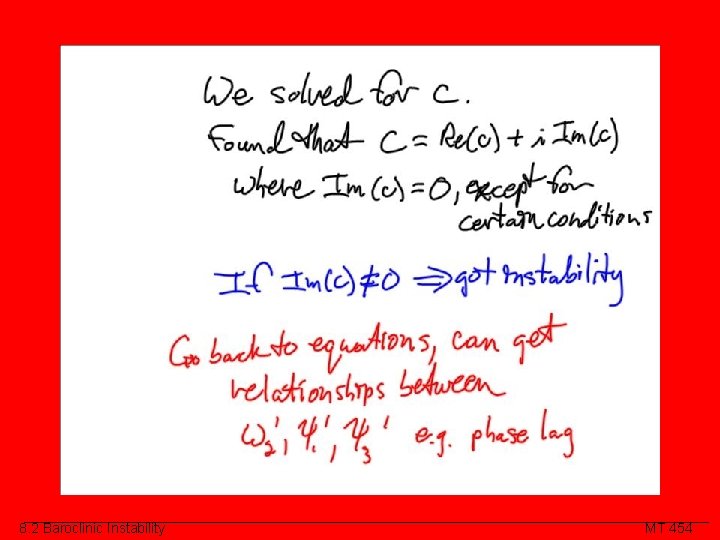 We solved for c.
Found that c = Re(c) + i Im(c)
where Im(c) = 0, except for
certain conditions
If Im(c) ≠ 0 ⇒ got instability
Go back to equations, can get
relationships between
ω₂', ψ₁', ψ₃' e.g. phase lag
8.2 Baroclinic Instability
MT 454